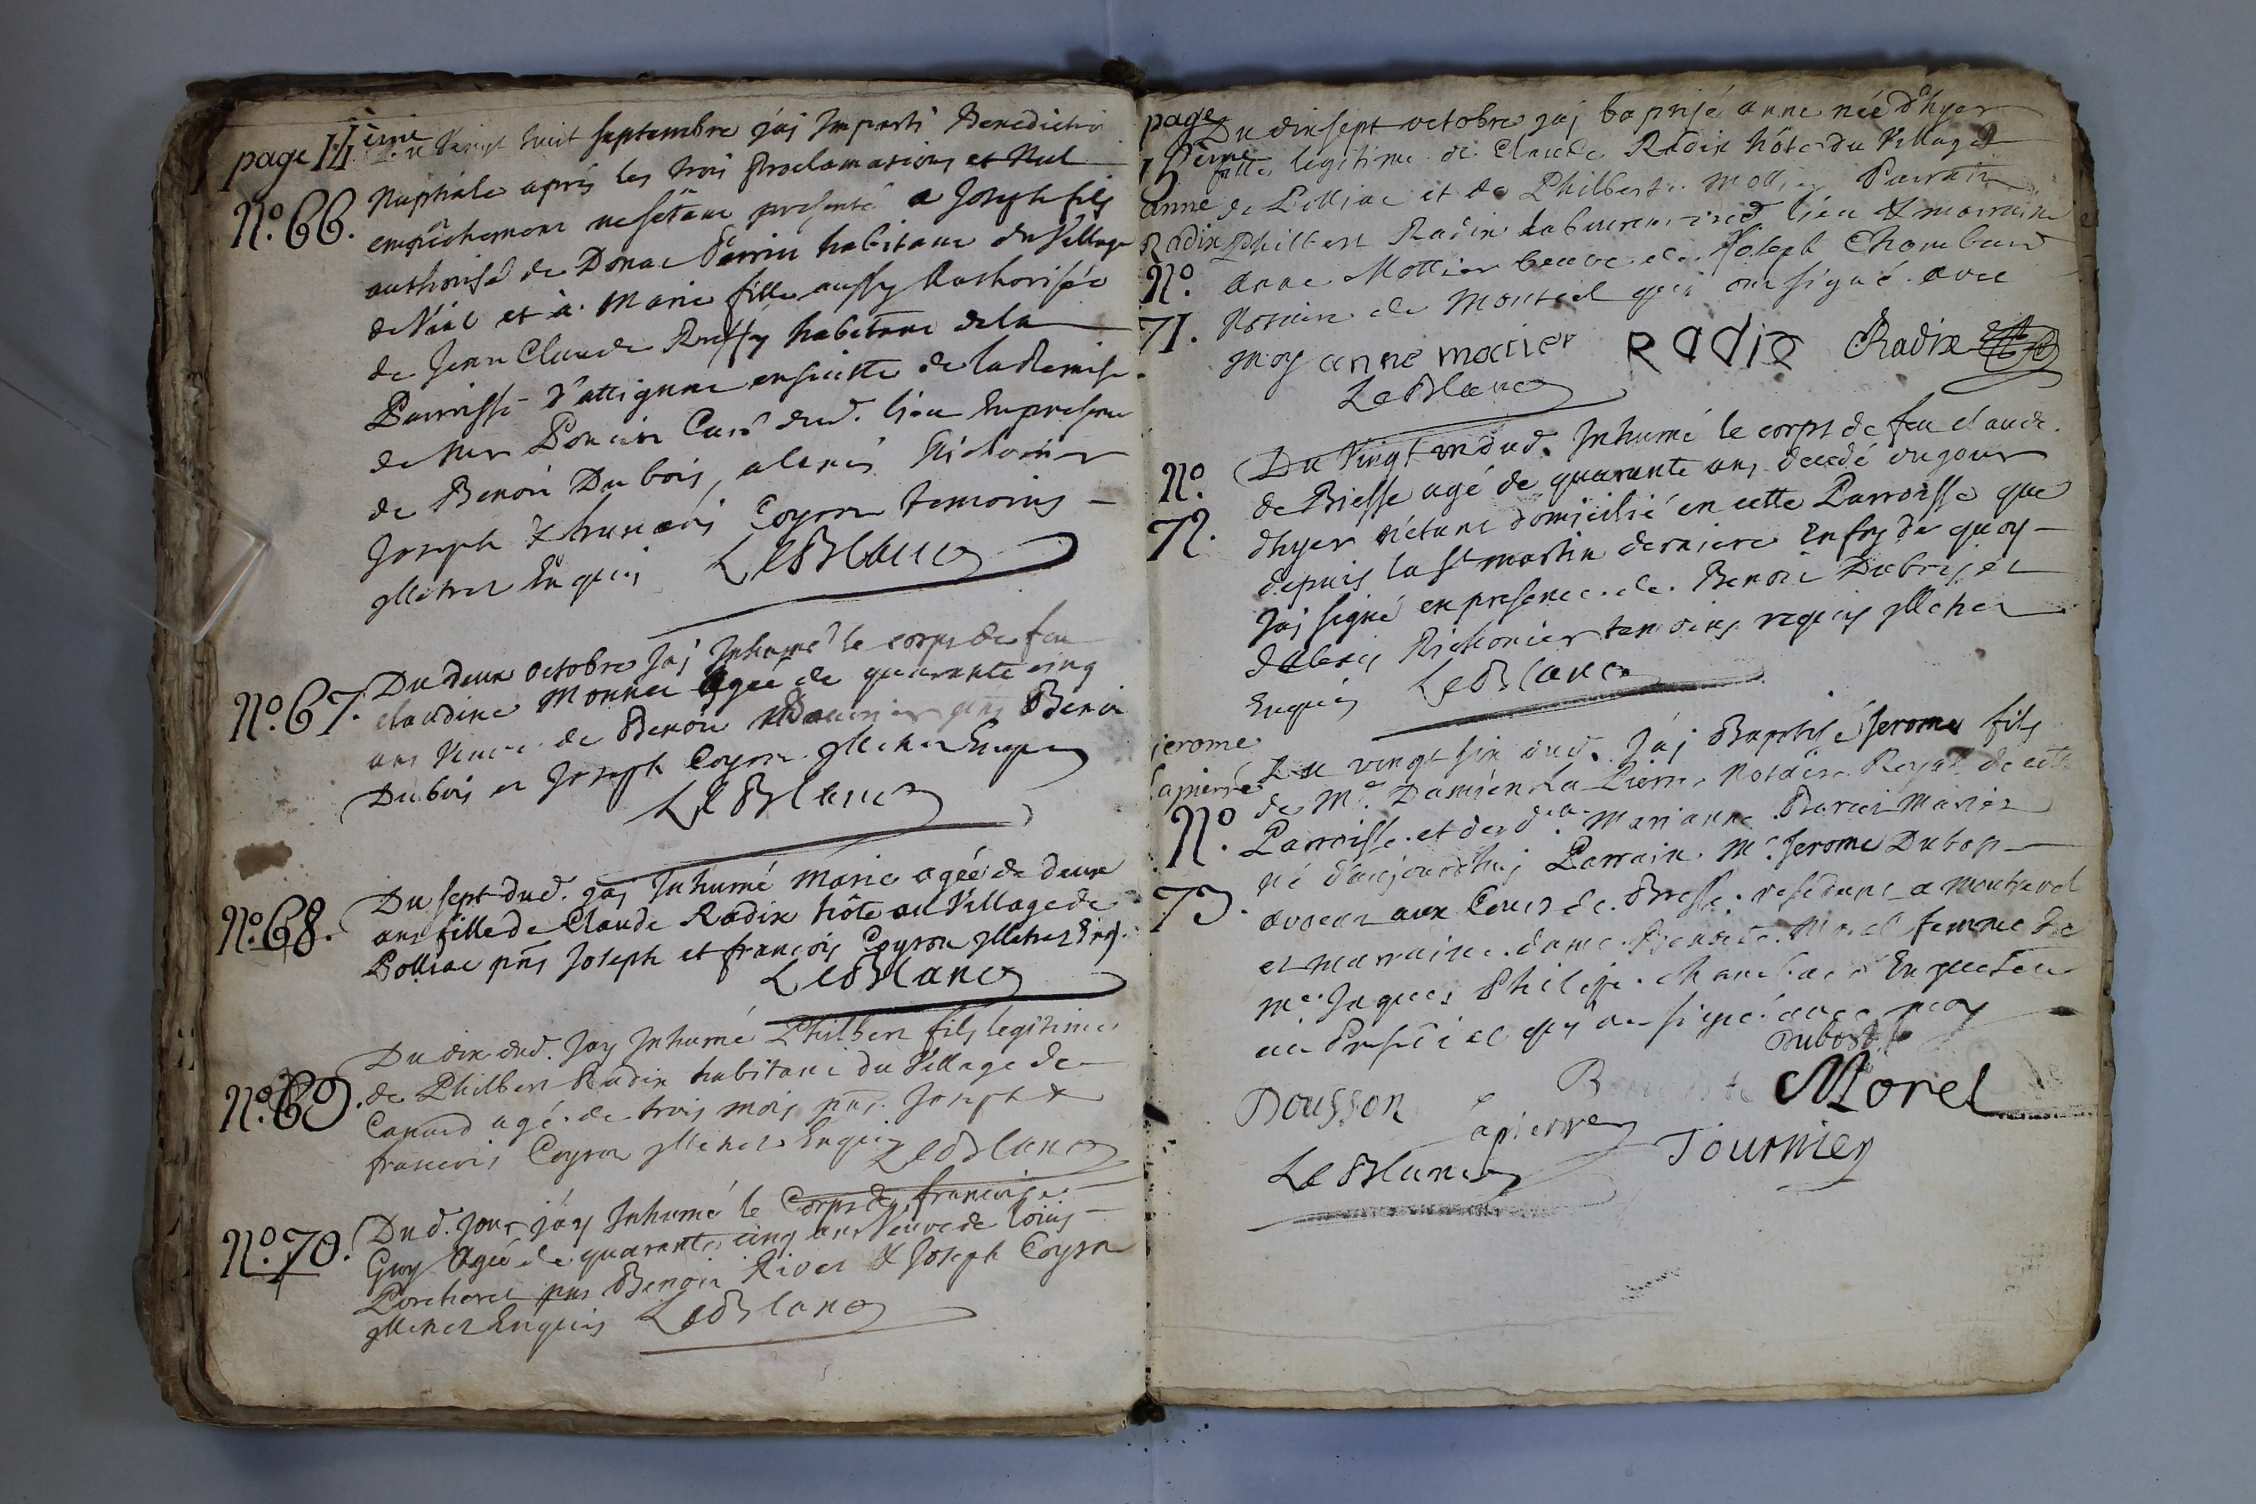 page 14ème
Du Vingt huit septembre jaj Imparti Benediction
No. 66. Nuptiale aprés les trois Proclamations et Nul
empêchement nesétant presenté a Joseph fils
authorisé de Donac Perrin habitant du Village
de et à Marie fille aussy Authorisée
de Jean Claude Ruffy habitant dela
Parroisse d'attignac ensuitte de la Remise
de Mr Poncin Curé dud. lieu En presence
de Benoi Dubois, alexis Richonier
Joseph & francois Coyron temoins
jlletrez Enquis LeBlanc
No. 67. Du deux octobre Jaj Inhumé le corps de feu
claudine Monnet Agée de quarante cinq
ans Veuve de Benoi pñs Benoi
Dubois et Joseph Coyron jlletrez Enquis
LeBlanc
No. 68. Du sept dud. jaj Inhumé Marie agée de deux
ans fille de Claude Radix hôte au Village de
Polliac pñs Joseph et francois Coyron jlletrez Enq.
LeBlanc
No. 69. Du dix dud. Jay Inhumé Philbert fils legitime
de Philbert Radix habitant du Village de
Canard agé de trois mois pñs. Joseph &
francois Coyron jlletrez Enquis LeBlanc
No. 70. Du d. jour jáy Inhumé le Corps de francoise
Guy Agée de quarante cinq ans Veuve de loüis
Porcheret pñs Benoi Rivet & Joseph Coyron
jlletrez Enquis LeBlanc
page
15ème
Du dixsept octobre jaj baptisé anne née d'hyer
fille legitime de Claude Radix hôte du Village
anne de Polliac et de Philberte Mottier Parrain
Radix Philbert Radix laboureur dud. lieu & marraine
No. anne Mottier beuve de Joseph Chambard
71. Notaire de Montcel qui ont signé avec
moy anne motier RADIX Radix
LeBlanc
No. Du Vingt un dud. Inhumé le corps de feu claude
72. de Biesse agé de quarante ans decedé du jour
dhyer s'étant domicilié en cette Parroisse que
depuis la St martin derniere En foy de quoy
Jaj signé en presence de Benoi Dubois et
d'Alexis Richonier temoins requis jlletrez
Enquis LeBlanc
jerome
lapierre
Du vingt six dud. Jáj Baptisé Jerome fils
de Me. Damien La Pierre Notaire Royal de cette
No. Parroisse et de dlle. Marianne mariez
73. né d'aujourdhuj Parrain Mr. Jerome Dubost
avocat aux Cours de Bresse residant a Montrevel
et marraine dame Benoite Morel femme de
Me. Jaques Philippe
qui ont signé avec moy
Dubost
Dousson Benoite Morel
Lapierre
LeBlanc Tournier